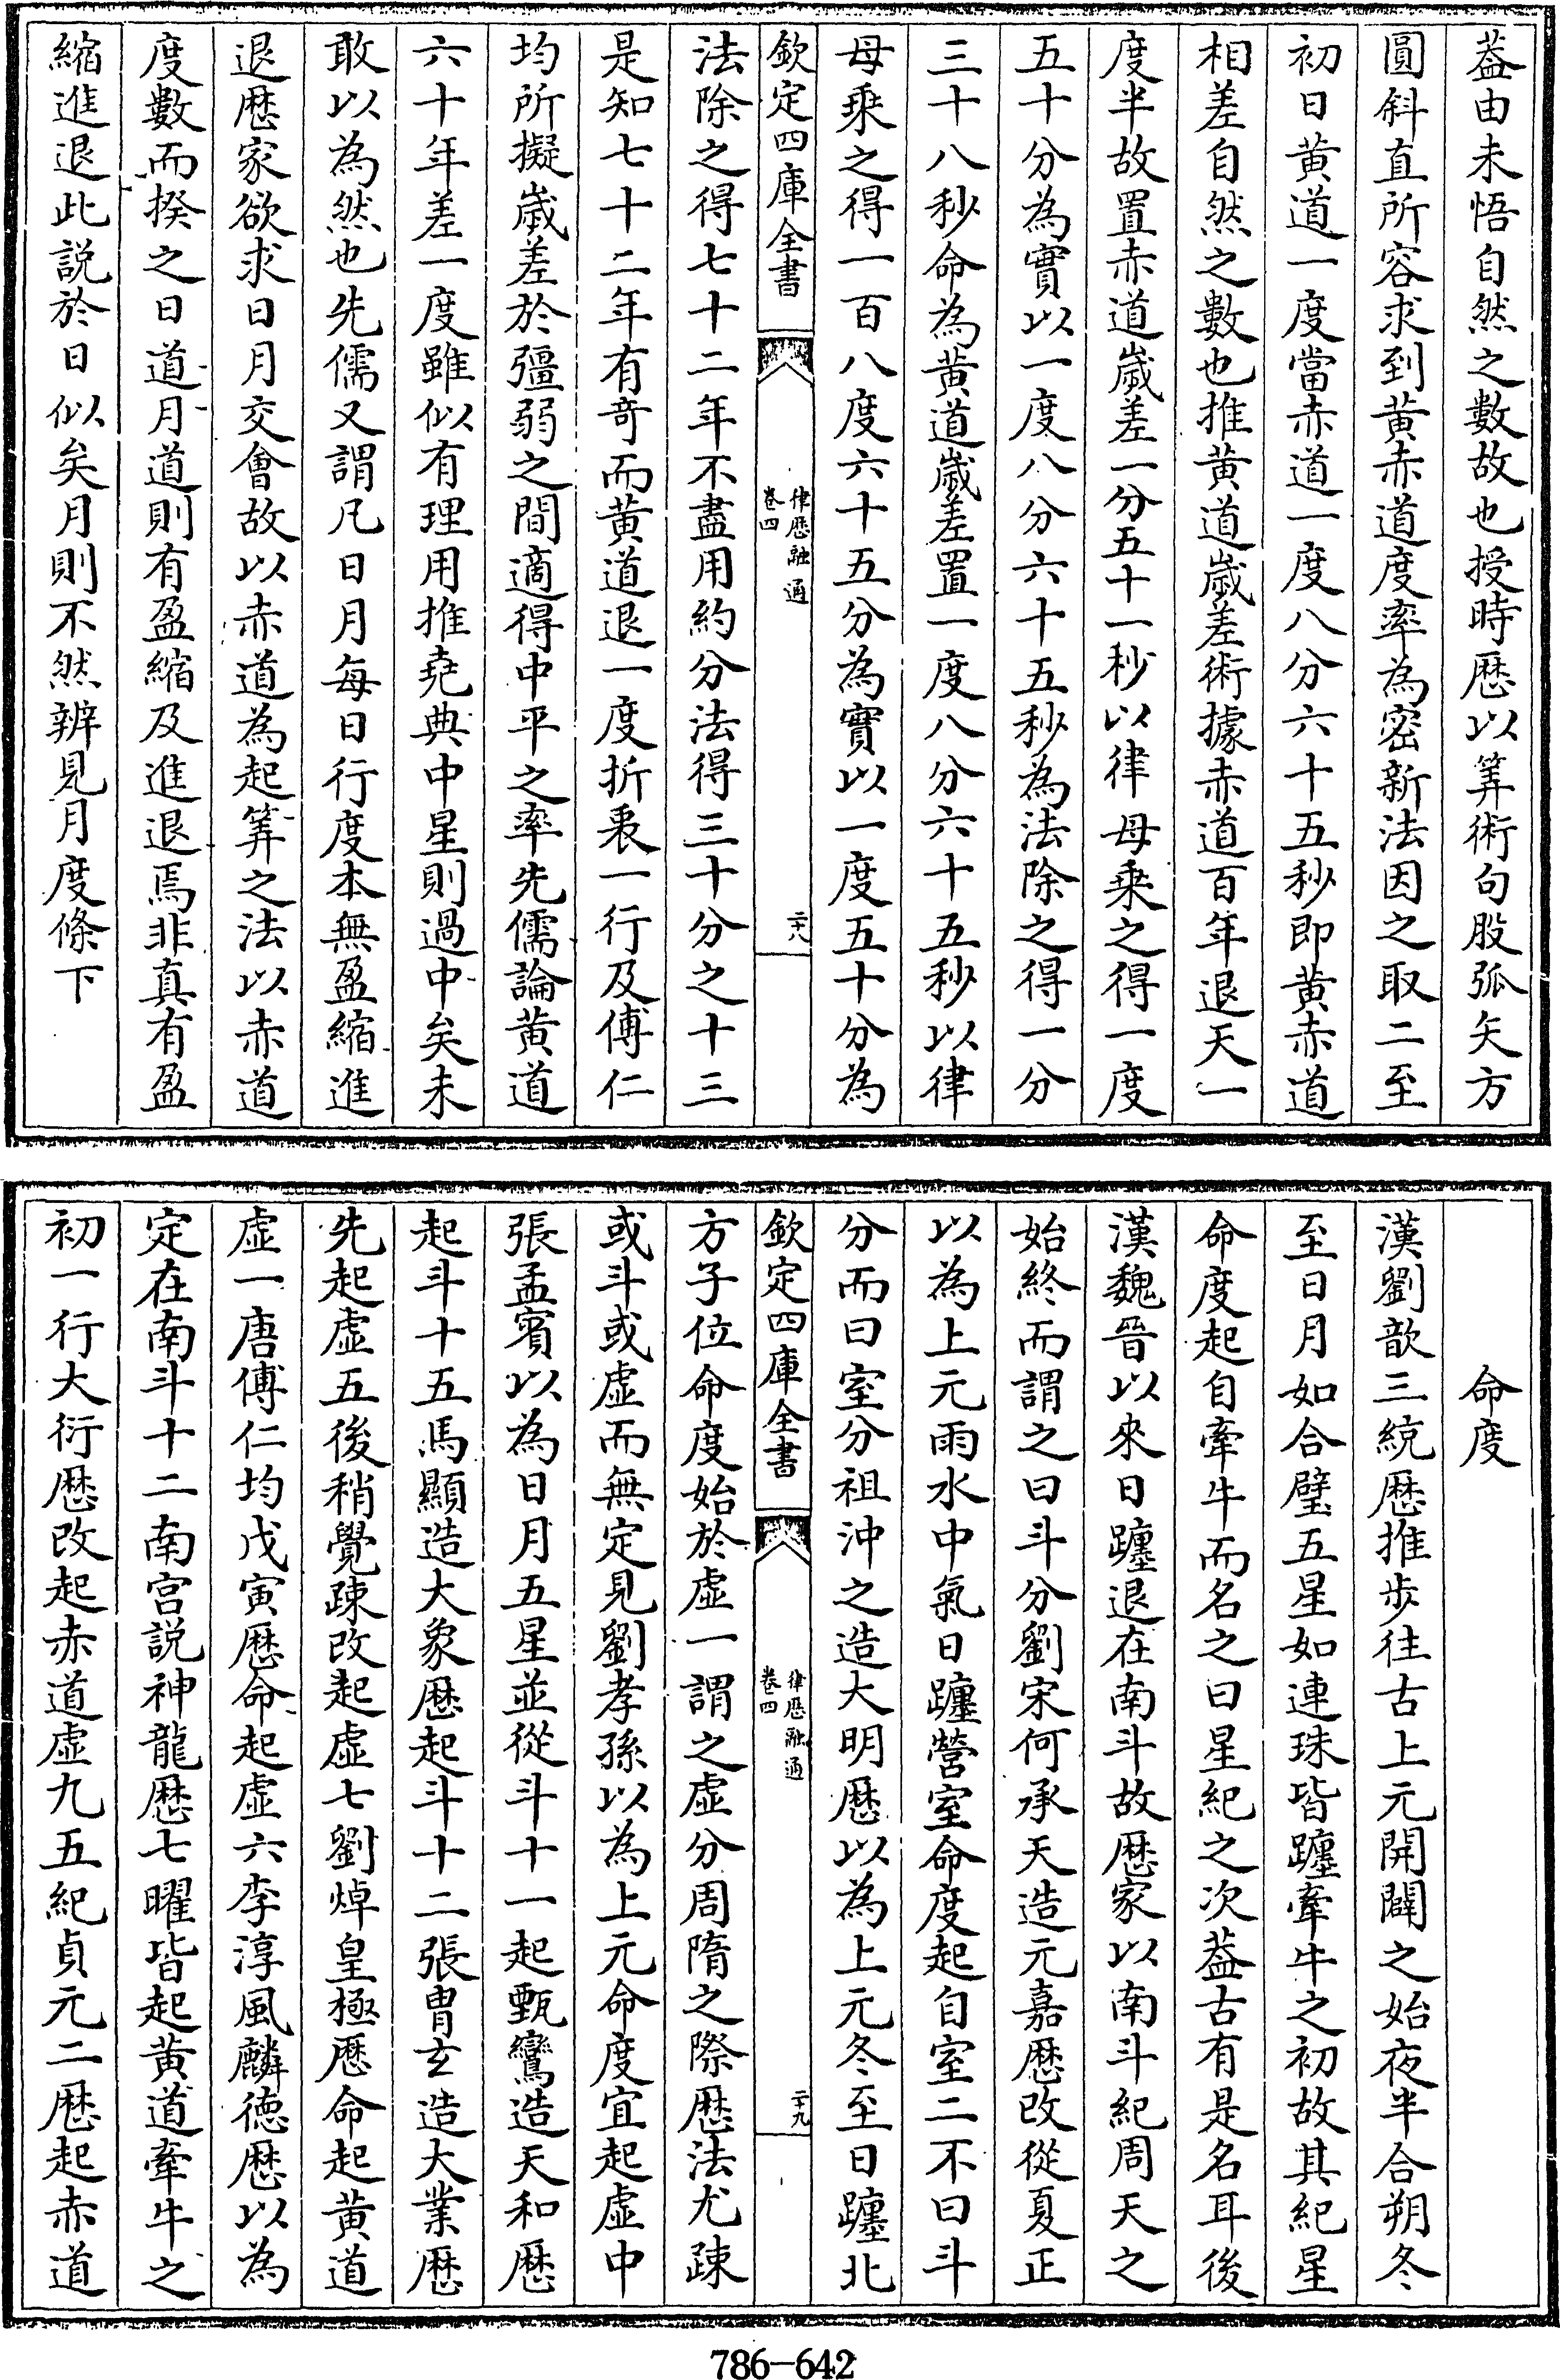 葢由未悟自然之數故也授時厯以筭術句股弧矢方
圓斜直所容求到黄赤道度率為密新法因之取二至
初日黄道一度當赤道一度八分六十五秒即黄赤道
相差自然之數也推黄道嵗差術據赤道百年退天一
度半故置赤道嵗差一分五十一秒以律母乗之得一度
五十分為實以一度八分六十五秒為法除之得一分
三十八秒命為黄道嵗差置一度八分六十五秒以律
母乗之得一百八度六十五分為實以一度五十分為
欽定四庫全書
律厯融通
卷四
二十八
法除之得七十二年不盡用約分法得三十分之十三
是知七十二年有竒而黄道退一度折衷一行及傅仁
均所擬嵗差於彊弱之間適得中平之率先儒論黄道
六十年差一度雖似有理用推堯典中星則過中矣未
敢以為然也先儒又謂凡日月每日行度本無盈縮進
退厯家欲求日月交會故以赤道為起筭之法以赤道
度數而揆之日道月道則有盈縮及進退焉非真有盈
縮進退此説於日似矣月則不然辨見月度條下
命度
漢劉歆三統厯推步往古上元開闢之始夜半合朔冬
至日月如合璧五星如連珠皆躔牽牛之初故其紀星
命度起自牽牛而名之曰星紀之次葢古有是名耳後
漢魏晉以來日躔退在南斗故厯家以南斗紀周天之
始終而謂之曰斗分劉宋何承天造元嘉厯改從夏正
以為上元雨水中氣日躔營室命度起自室二不曰斗
分而曰室分祖沖之造大明厯以為上元冬至日躔北
欽定四庫全書
律厯融通
卷四
二十九
方子位命度始於虚一謂之虚分周隋之際厯法尤踈
或斗或虚而無定見劉孝孫以為上元命度宜起虚中
張孟賓以為日月五星並從斗十一起甄鸞造天和厯
起斗十五馬顯造大象厯起斗十二張冑玄造大業厯
先起虚五後稍覺踈改起虚七劉焯皇極厯命起黄道
虚一唐傅仁均戊寅厯命起虚六李淳風麟徳厯以為
定在南斗十二南宫説神龍厯七曜皆起黄道牽牛之
初一行大衍厯改起赤道虚九五紀貞元二厯起赤道
786-642